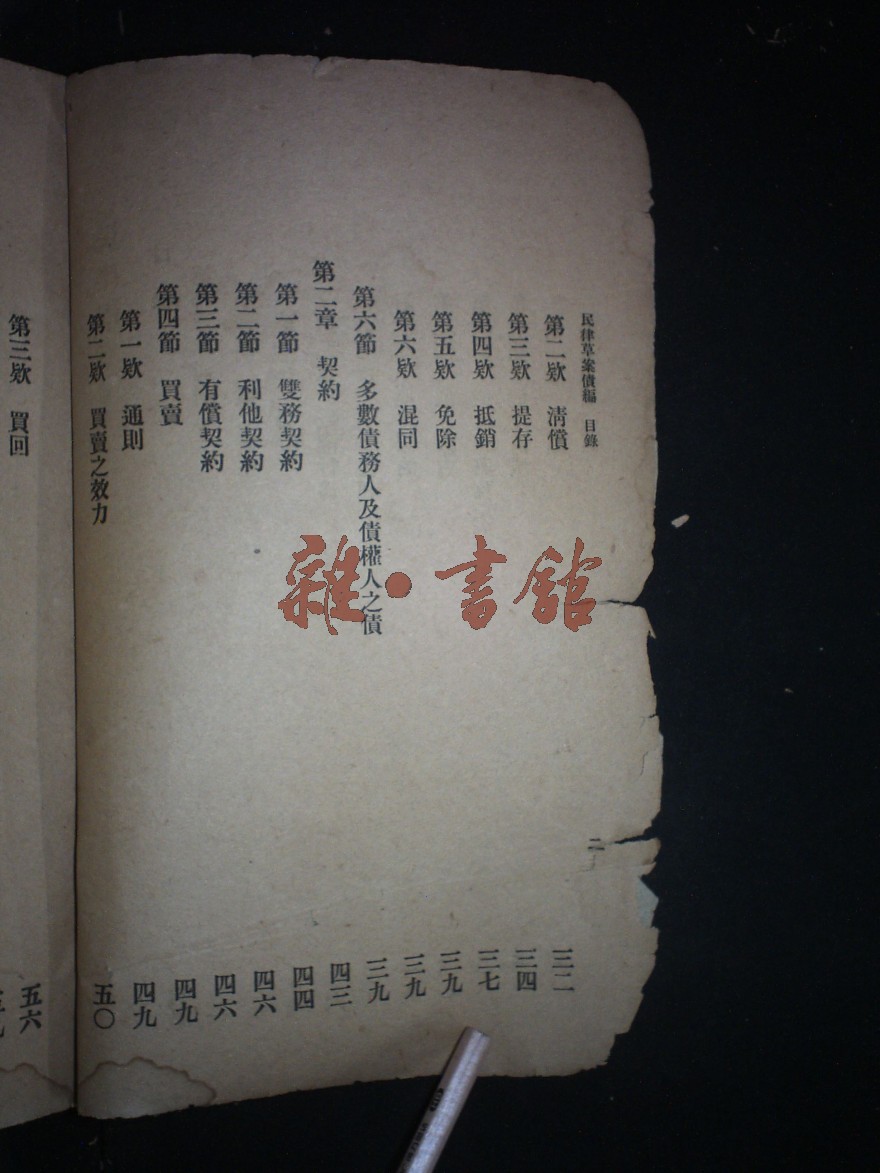 民律草案債編 目錄 二
第二欵 清償 三二
第三欵 提存 三四
第四欵 抵銷 三七
第五欵 免除 三九
第六欵 混同 三九
第六節 多數債務人及債權人之債 三九
第二章 契約 四三
第一節 雙務契約 四四
第二節 利他契約 四六
第三節 有償契約 四六
第四節 買賣 四九
第一欵 通則 四九
第二欵 買賣之效力 五〇
第三欵 買回 五六
雜·書館